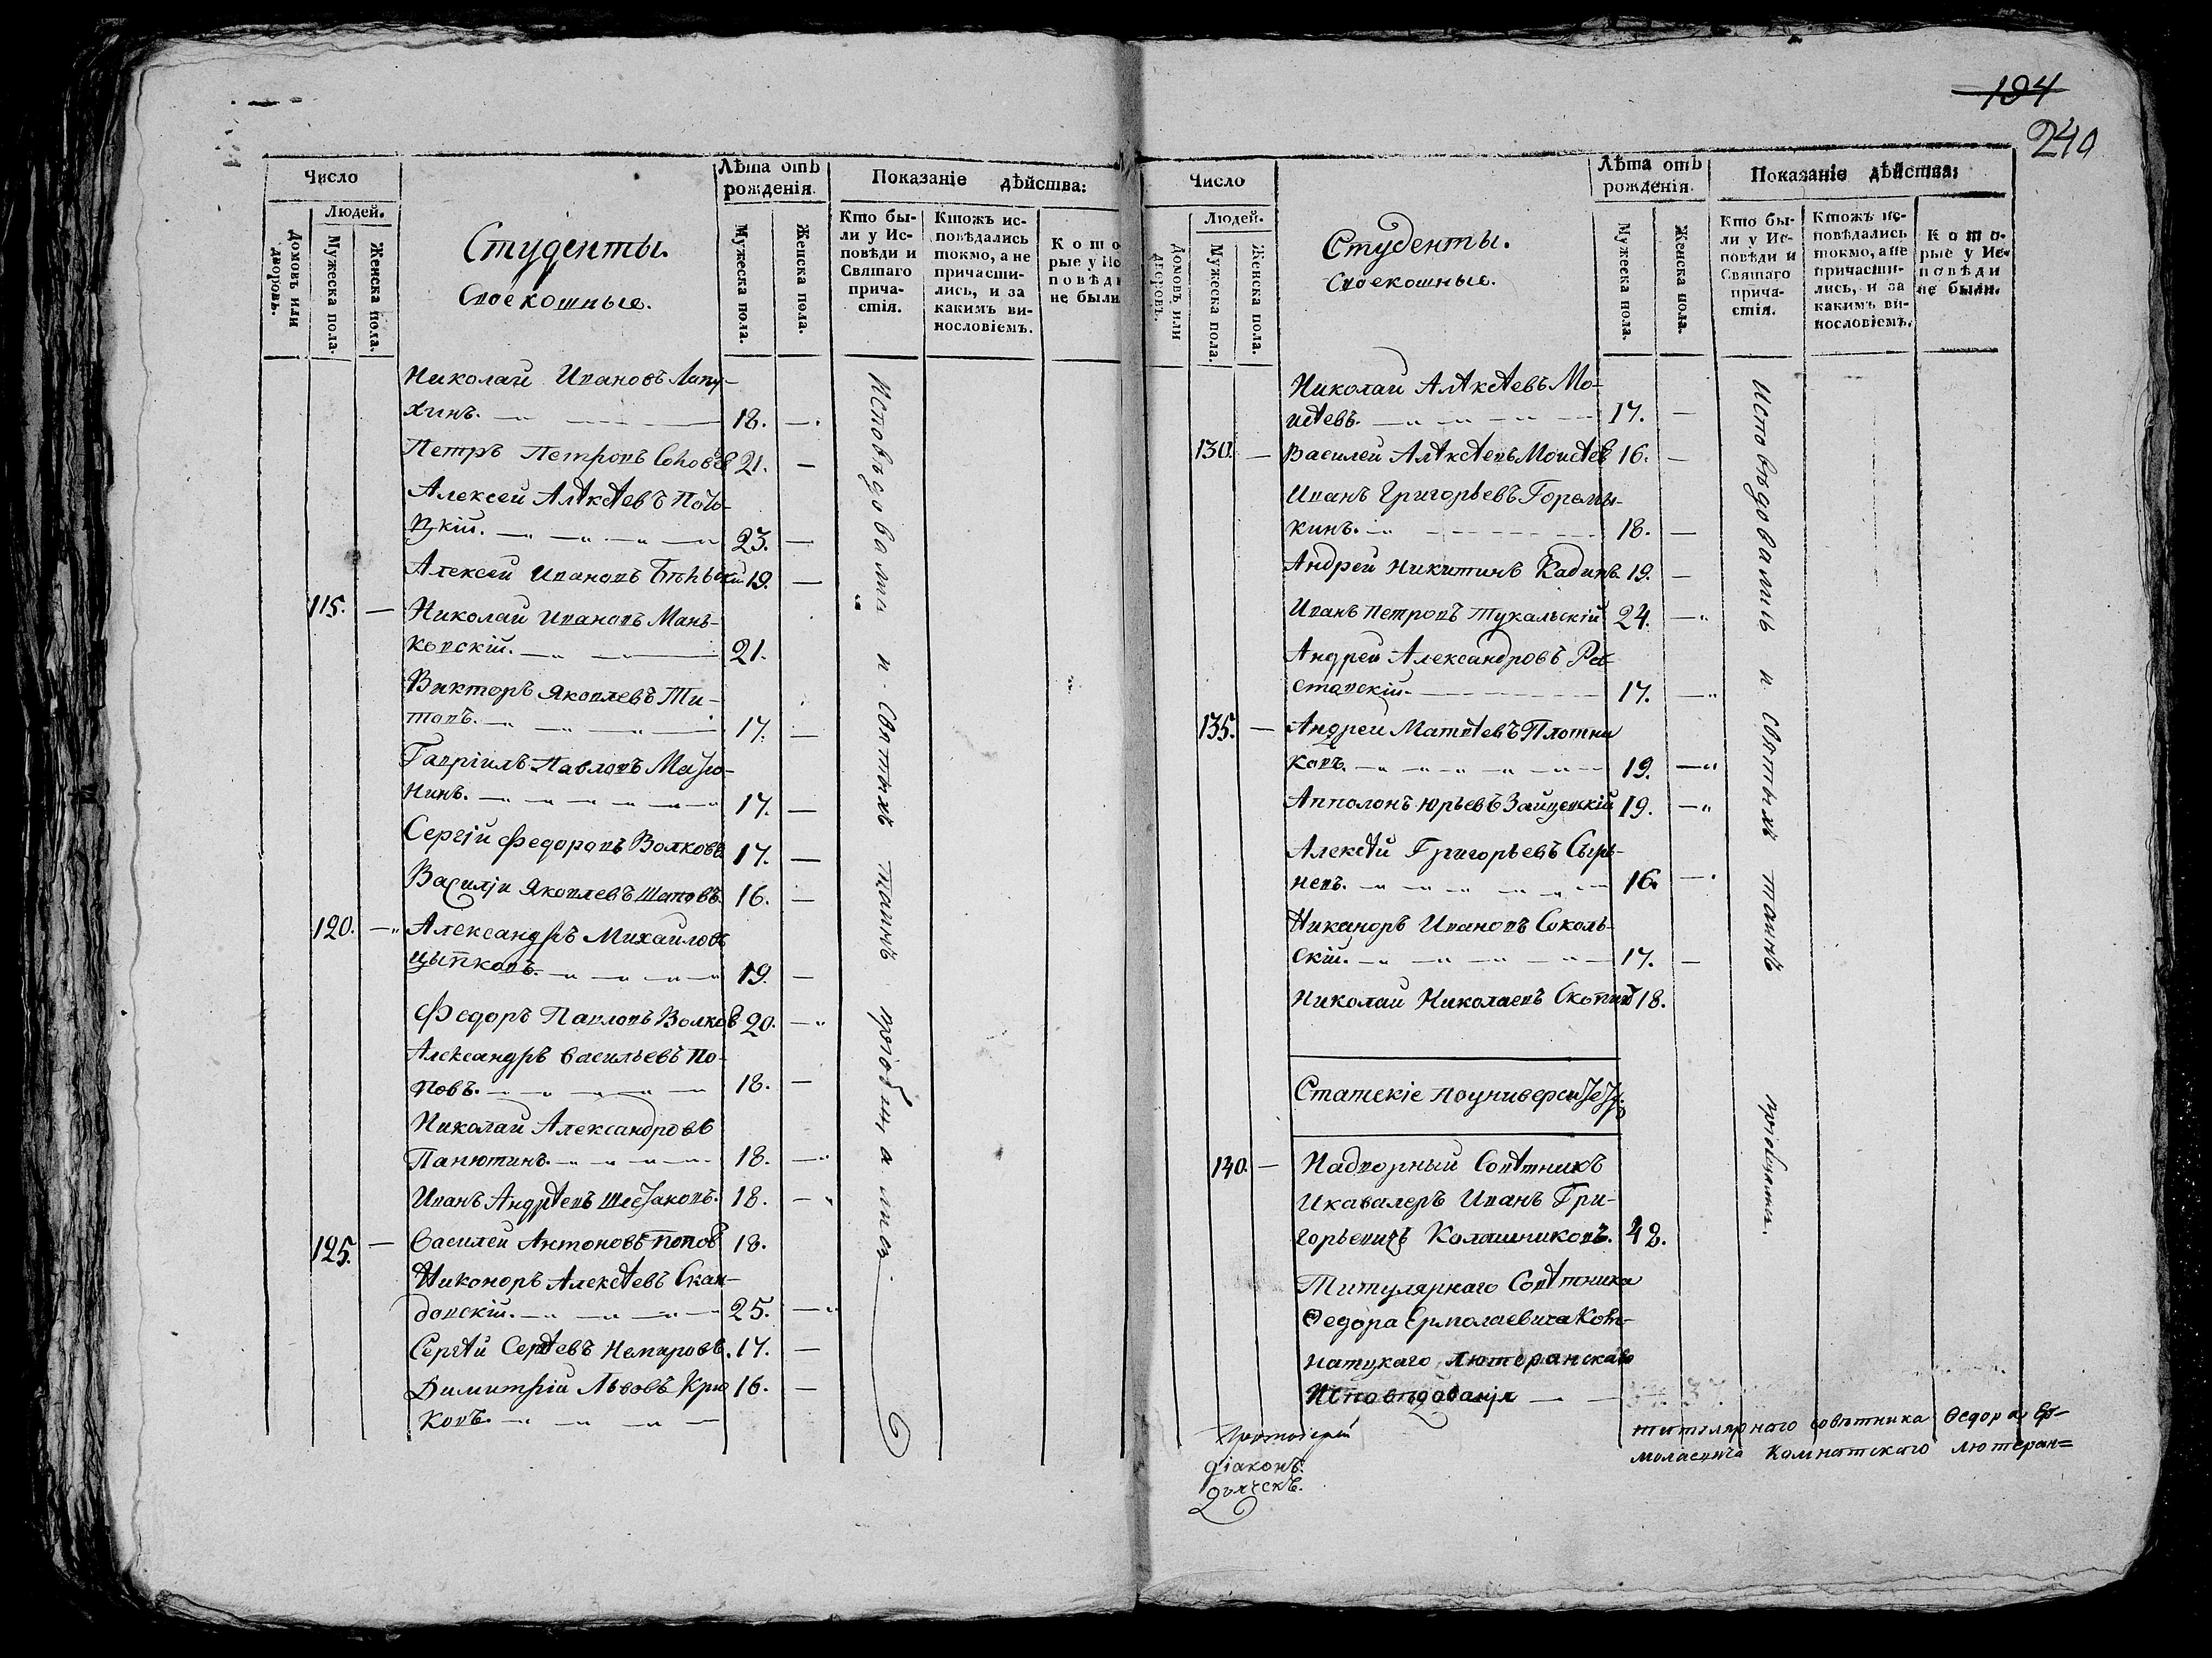 194
240
Число
Людей.
Домовъ или дворовъ.
Мужеска пола.
Женска пола.
Студенты.
Своекошные.
Лѣта отъ рожденія.
Мужеска пола.
Женска пола.
Показаніе дѣйства:
Кто бы-
ли у Ис-
повѣди и
Святаго
прича-
стія.
Ктожъ ис-
повѣдались
токмо, а не
причасти-
лись, и за
какимъ ви-
нословіемъ.
Кото
рые у Ис
повѣди
не были
Николай Ивановъ Лапу-
хинъ. 18.
Петръ Петровъ 21.
Алексей Алѣксѣевъ
23.
Алексей Ивановъ 19.
115. Николай Ивановъ Мань-
ковскій. 21.
Викторъ Яковлевъ Ти-
товъ. 17.
Гавріилъ Павловъ
нинъ. 17.
Сергій Федоровъ Волковъ 17.
Василій Яковлевъ Шаповъ. 16.
120. Александръ Михайловъ
Цыпковъ. 19.
Федоръ Павловъ Волков 20.
Александръ Васильевъ По-
повъ. 18.
Николай Александровъ
Панютинъ. 18.
Иванъ Андрѣевъ 18.
125. Василей Антоновъ Попов 18.
Никоноръ Алексѣевъ Скан-
довскій. 25.
Сергѣй Сергѣевъ Немировъ. 17.
Димитрій Львовъ Крю 16.
ковъ.
Исповѣдовались и Святыхъ таинъ пріобщались
Число
Людей.
Домовъ или дворовъ.
Мужеска пола.
Женска пола.
Студенты.
Своекошные.
Лѣта отъ рожденія.
Мужеска пола.
Женска пола.
Показаніе дѣйства:
Кто бы-
ли у Ис-
повѣди и
Святаго
прича-
стія.
Ктожъ ис-
повѣдались
токмо, а не
причасти-
лись, и за
какимъ ви-
нословіемъ.
Кото-
рые у Ис-
повѣди
не были.
Николай Алѣксѣевъ Мо-
исѣевъ. 17.
130. Василей Алѣксѣевъ Моисѣев 16.
Иванъ Григорьевъ Горемы-
кинъ. 18.
Андрей Никитинъ Кадинъ 19.
Иванъ Петровъ Тукальскій 24.
Андрей Александровъ
ставскій. 17.
135. Андрей Матвѣевъ Плотни
ковъ. 19.
Апполонъ Юрьевъ Зайцевскій 19.
Алексѣй Григорьевъ Сыр-
невъ. 16.
Никаноръ Ивановъ Соколь-
скій. 17.
Николай Николаевъ 18.
Исповѣдовались и Святыхъ таинъ пріобщались.
Статскіе
140. Надворный Совѣтникъ
И кавалеръ Иванъ Гри-
горьевичъ Колашниковъ. 42.
Титулярнаго Совѣтника
Ѳедора Ермолаевича Ком-
натскаго Лютеранскаго
Исповѣдованія 37.
Протоіерей
діаконъ.
дьячекъ.
титулярного совѣтника Ѳедора Ер-
молаевича Комнатского лютеран=